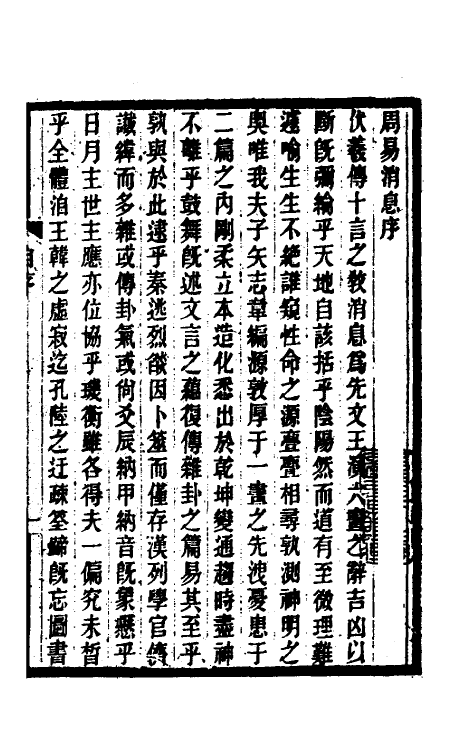 周易消息序
伏羲傳十言之敎消息爲先文王演六爻之辭吉凶以
斷旣彌綸乎天地自該括乎陰陽然而道有至微理難
遽喻生生不絶誰窺性命之源亹亹相尋孰測神明之
奥唯我夫子矢志韋編源敦厚于一畫之先洩憂患于
二篇之內剛柔立本造化悉出於乾坤變通趨時盡神
不離乎鼓舞旣述文言之蘊復傳雜卦之篇易其至乎
孰與於此逮乎秦逃烈燄因卜筮而僅存漢列學官儕
讖緯而多雜或傳卦氣或尙爻辰納甲納音旣象懸乎
日月主世主應亦位協乎璣衡雖各得夫一偏究未晳
乎全體洎王韓之虛寂迄孔陸之迂疎筌蹄旣忘圖書